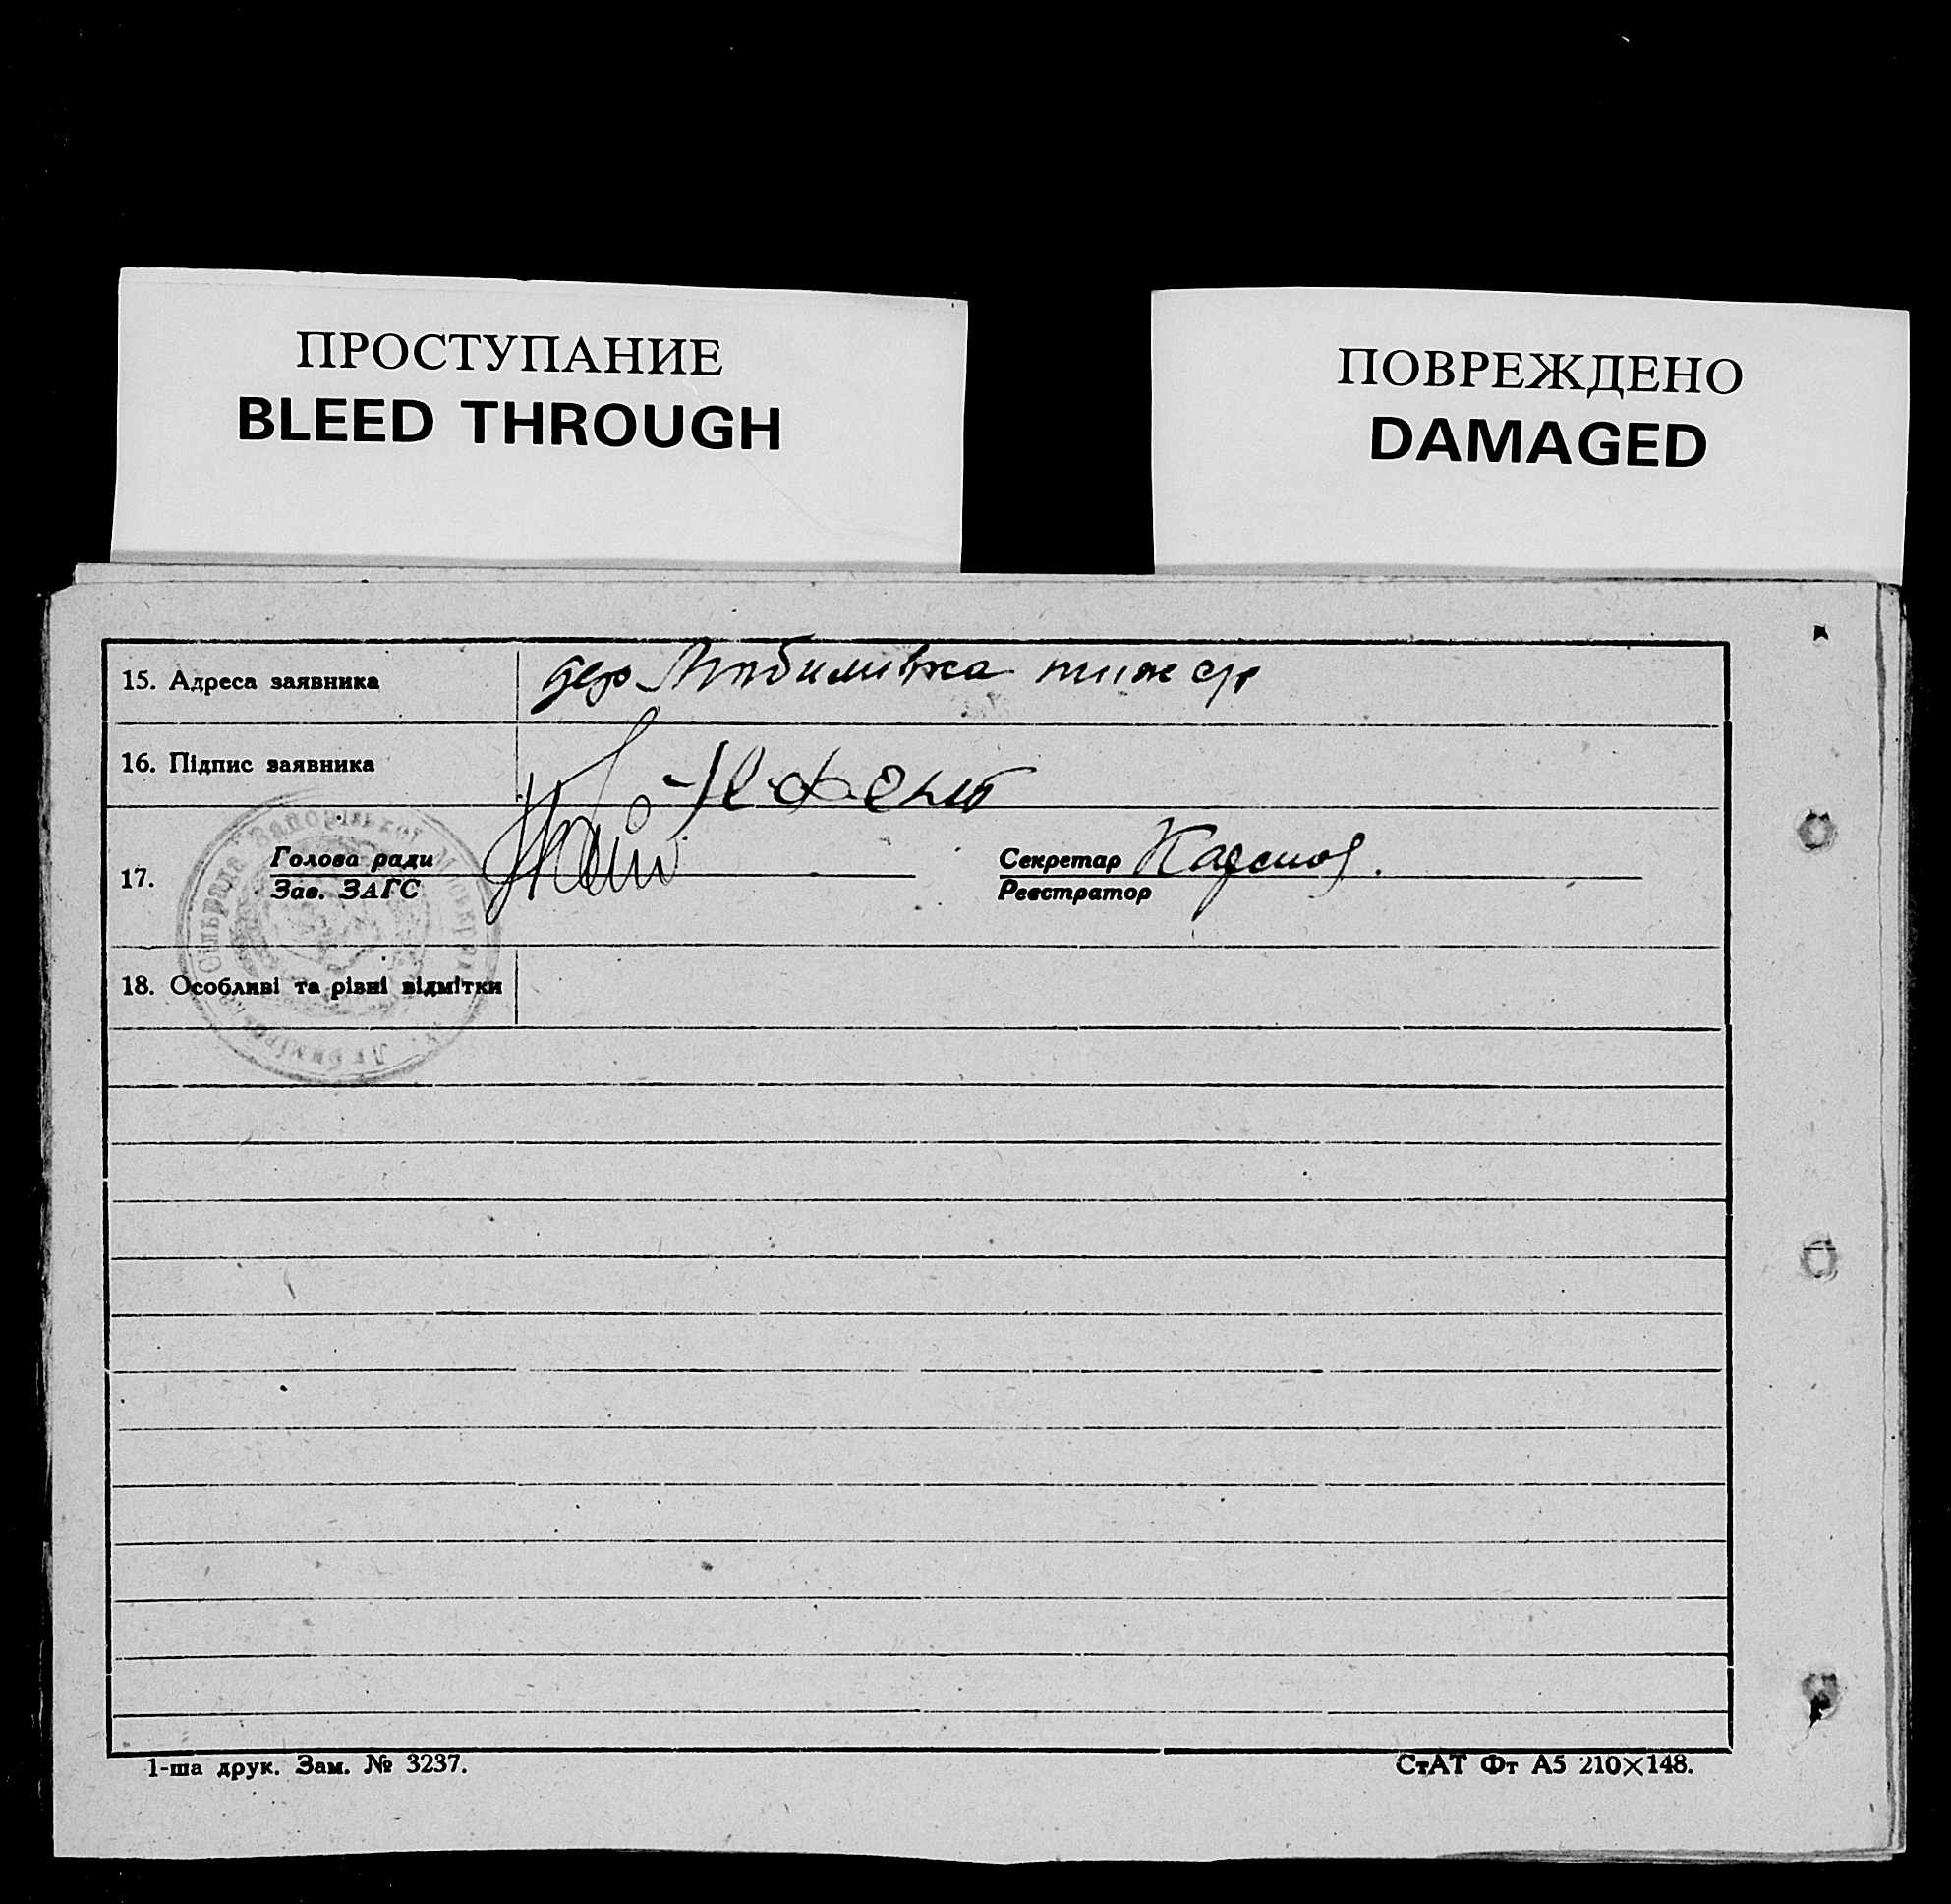 ПРОСТУПАНИЕ
BLEED THROUGH
ПОВРЕЖДЕНО
DAMAGED
15. Адреса заявника
дер
16. Підпис заявника
17.
Голова ради
Зав. ЗАГС
Секретар
Реєстратор
Сільрада Запорізької Міськради
18. Особливі та різні відмітки
1-ша друк. Зам. № 3237.
СтАТ Фт А5 210×148.